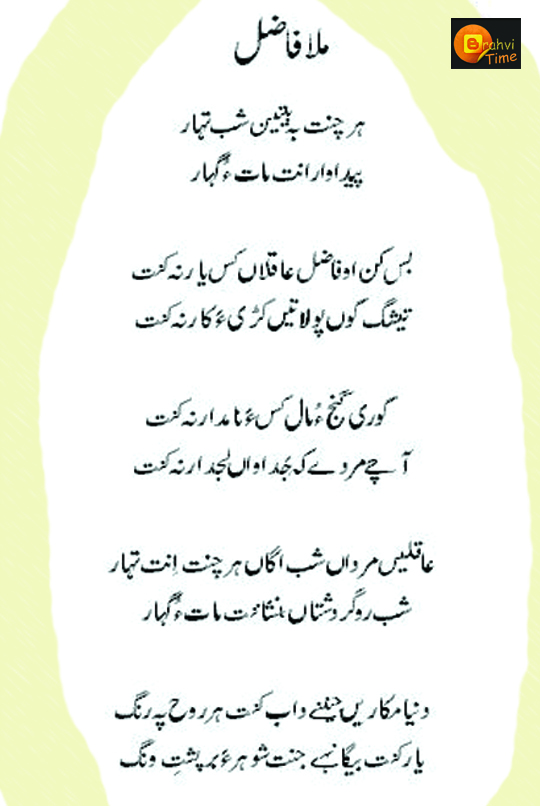 ملا فاضل
Brahvi
Time
ہر چنت بہ بیتین شب تہار
پیداوار انت مات ءُ گہار
بس کن او فاضل عاقلاں کس یار نہ کنت
تیشگ گوں پولاتیں کڑی ءَ کار نہ کنت
گوری گنج ءُ مال کس ءَ نامدار نہ کنت
آ چے مردے کہ جُداواں لجدار نہ کنت
عاقلیں مرداں شب اگاں ہر چنت اِنت تہار
شب روگردشتاں مات ءُ گہار
دنیا مکاریں داب کنت ہر روح پہ رنگ
یار کنت بیگانہے جنت شوہر ءَ بر پشتِ ونگ